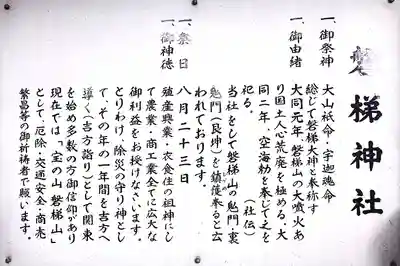 磐梯神社
一、御祭神
大山祇命・宇迦魂命
総じて磐梯大神と奉称す
一、御由緒
大同元年、磐梯山の大噴火あ
り国土人心荒廃を極める。大
同二年、空海勅を奉じて之を
祀る。
(社伝)
当社をして磐梯山の鬼門・裏
鬼門(艮坤)を鎮護奉ると云
われております。
一、祭日
八月二十三日
一、御神徳
殖産興業・衣食住の祖神にし
て農業・商工業全てに広大な
御利益をお授けなさいます。
とりわけ、除災の守り神とし
て、その年の一年間を吉方へ
導く(吉方詣り)として関東
を始め多数の方御信仰があり
現在では、「宝の山磐梯山」
として、厄除・交通安全・商売
繁昌等の御祈祷者で賑います。